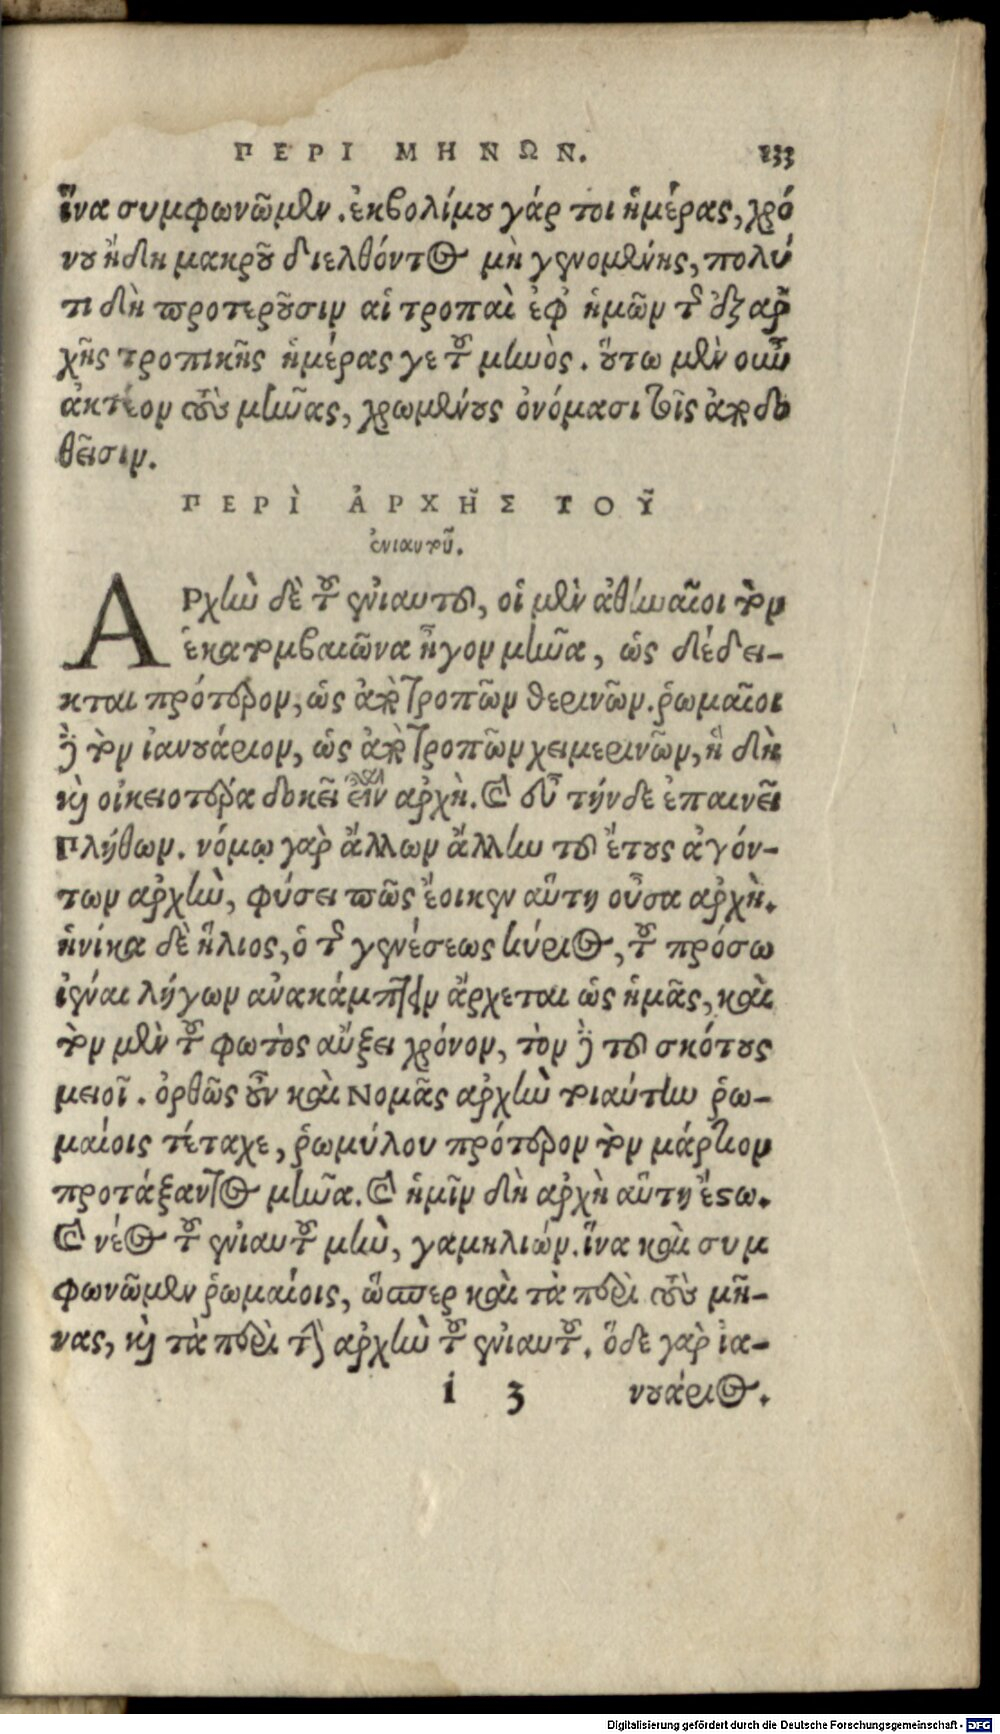 ΠΕΡΙ ΜΗΝΩΝ. 133
ἵνα συμφωνῶμεν. ἐκβολίμου γάρ τοι ἡμέρας, χρό
νου ἤδη μακροῦ διελθόντος μὴ γενομένης, πολύ
τι δὴ προτεροῦσιν αἱ τροπαὶ ἐφ ἡμῶν τῆς ἐξ ἀρ
χῆς τροπικῆς ἡμέρας γε τοῦ μηνὸς. οὕτω μὲν οὖν
ἀκτέον τοὺς μῆνας, χρωμένους ὀνόμασι τοῖς ἀποδο
θεῖσιν.
ΠΕΡῚ ἈΡΧΗ͂Σ ΤΟΥ͂
ἐνιαυτοῦ.
ΑΡχὴν δὲ τοῦ ἐνιαυτοῦ, οἱ μὲν ἀθηναῖοι τὸν
ἑκατομβαιῶνα ἦγον μῆνα, ὡς δέδει-
κται πρότερον, ὡς ἀπὸ τροπῶν θερινῶν. ῥωμαῖοι
δὲ τὸν ἰανουάριον, ὡς ἀπὸ τροπῶν χειμερινῶν, ἣ δὴ
καὶ οἰκειοτέρα δοκεῖ εἶναι ἀρχὴ. καὶ οὖν τήνδε ἐπαινεῖ
Πλήθων. νόμῳ γὰρ ἄλλων ἄλλην τοῦ ἔτους ἀγόν-
των ἀρχὴν, φύσει πῶς ἔοικεν αὕτη οὖσα ἀρχὴ.
ἡνίκα δὲ ἥλιος, ὁ τῆς γενέσεως κύριος, τοῦ πρόσω
ἰέναι λήγων ἀνακάμπτειν ἄρχεται ὡς ἡμᾶς, καὶ
τὸν μὲν τοῦ φωτὸς αὔξει χρόνον, τὸν δὲ τοῦ σκότους
μειοῖ. ὀρθῶς οὖν καὶ Νομᾶς ἀρχὴν τοιαύτην ῥω-
μαίοις τέταχε, ῥωμύλου πρότερον τὸν μάρτιον
προτάξαντος μῆνα. καὶ ἡμῖν δὴ ἀρχὴ αὕτη ἔστω.
καὶ νέος τοῦ ἐνιαυτοῦ μὴν, γαμηλιών. ἵνα καὶ συμ
φωνῶμεν ῥωμαίοις, ὥσπερ καὶ τὰ περὶ τοὺς μῆ-
νας, καὶ τὰ περὶ τὴν ἀρχὴν τοῦ ἐνιαυτοῦ. ὅδε γὰρ ἰα-
i 3 νουάριος.
Digitalisierung gefördert durch die Deutsche Forschungsgemeinschaft - DFG